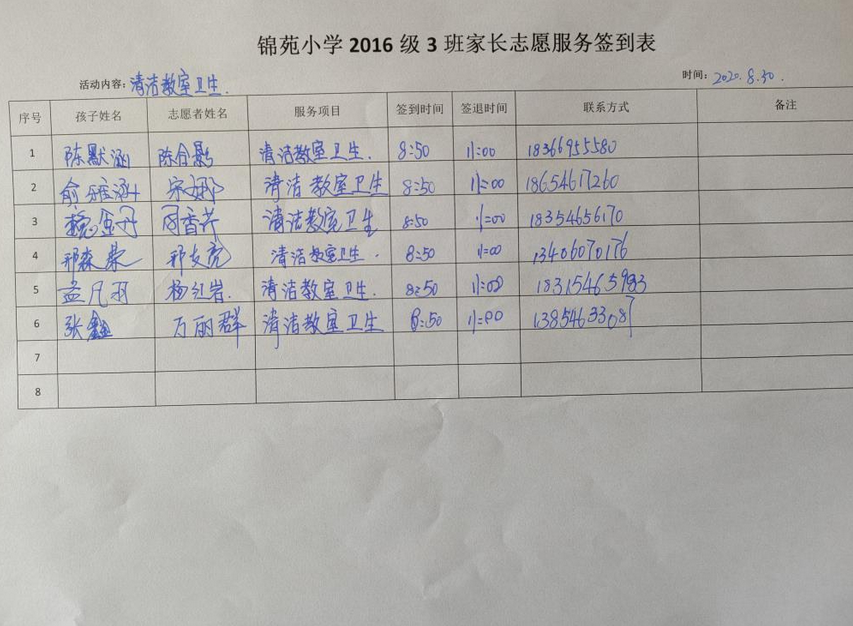 锦苑小学 2016 级 3 班家长志愿服务签到表
活动内容：清洁教室卫生. 时间：2020.8.30.
序号 孩子姓名 志愿者姓名 服务项目 签到时间 签退时间 联系方式 备注
1 陈默涵 陈合彭 清洁教室卫生. 8:50 11:00 18366955580
2 俞雅涵 宋娜 清洁教室卫生 8:50 11:00 18654617260
3 周香芹 清洁教室卫生 8:50 11:00 18354656170
4 邢森荣 邢友亮 清洁教室卫生. 8:50 11:00 13406070176
5 孟凡羽 杨红岩. 清洁教室卫生. 8:50 11:00 18315465983
6 张鑫 万丽群 清洁教室卫生 8:50 11:00 13854633087
7
8